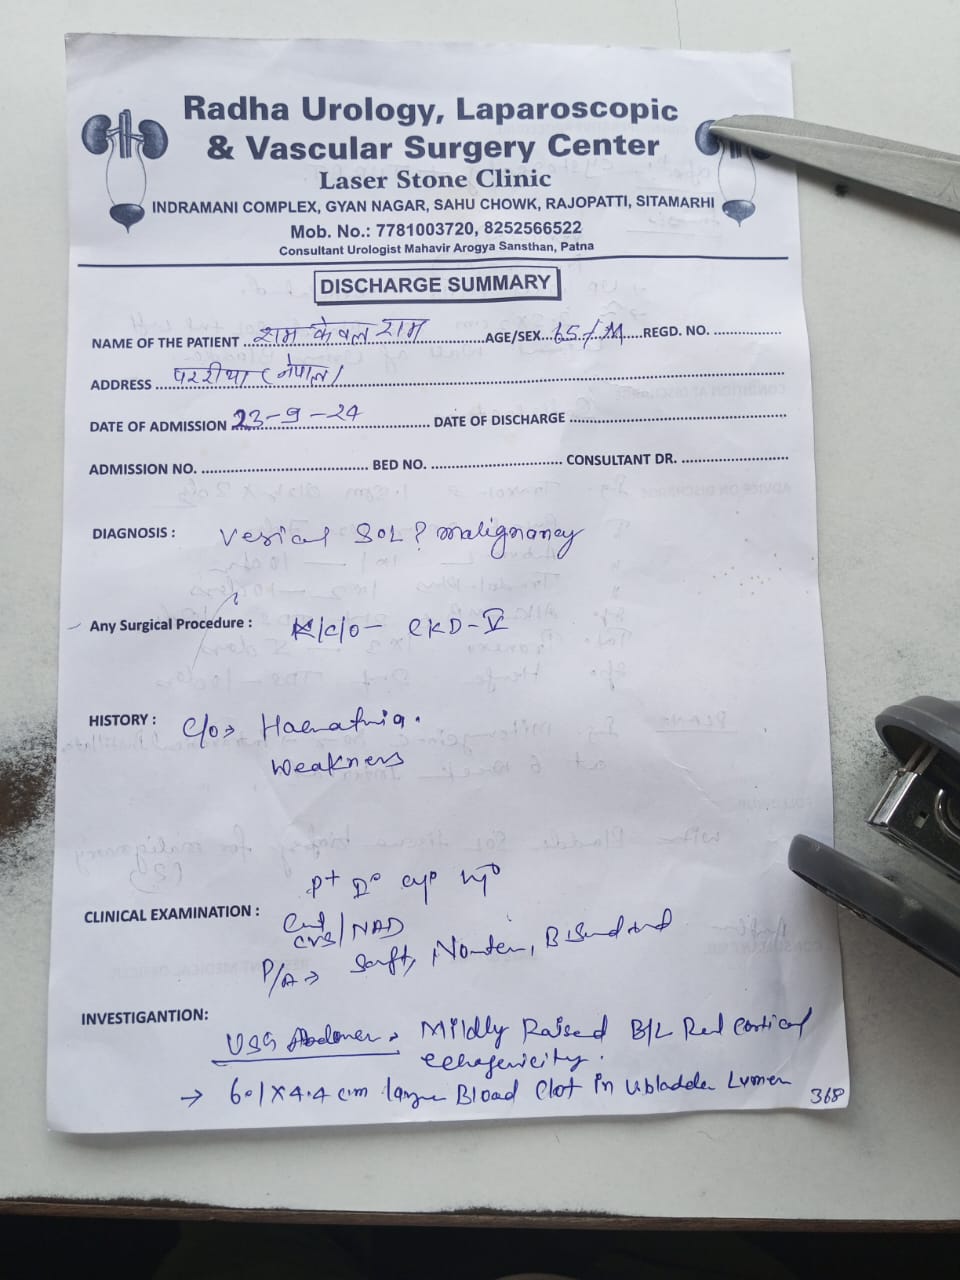 Radha Urology, Laparoscopic
& Vascular Surgery Center
Laser Stone Clinic
INDRAMANI COMPLEX, GYAN NAGAR, SAHU CHOWK, RAJOPATTI, SITAMARHI
Mob. No.: 7781003720, 8252566522
Consultant Urologist Mahavir Arogya Sansthan, Patna
DISCHARGE SUMMARY
NAME OF THE PATIENT राम केवल राम AGE/SEX 65/M REGD. NO.
ADDRESS (नेपाल)
DATE OF ADMISSION 23-9-24 DATE OF DISCHARGE
ADMISSION NO. BED NO. CONSULTANT DR.
DIAGNOSIS : Vesical SOL ? malignancy
Any Surgical Procedure : K/c/o - CKD-V
HISTORY : C/o → Haematuria.
Weakness
P+ I° cy° 
CLINICAL EXAMINATION :
CVS/NAD
P/A → Soft, Nonten,
INVESTIGANTION:
USG Abdomen → Mildly Raised B/L Renal Cortical
echogenicity.
→ 6.1 X 4.4 cm large Blood Clot in Ubladder Lumen
368